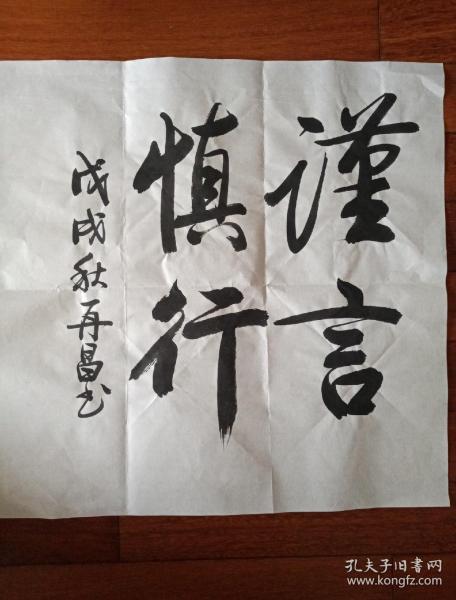 谨言
慎行
戊戌秋再昌书
孔夫子旧书网
www.kongfz.com